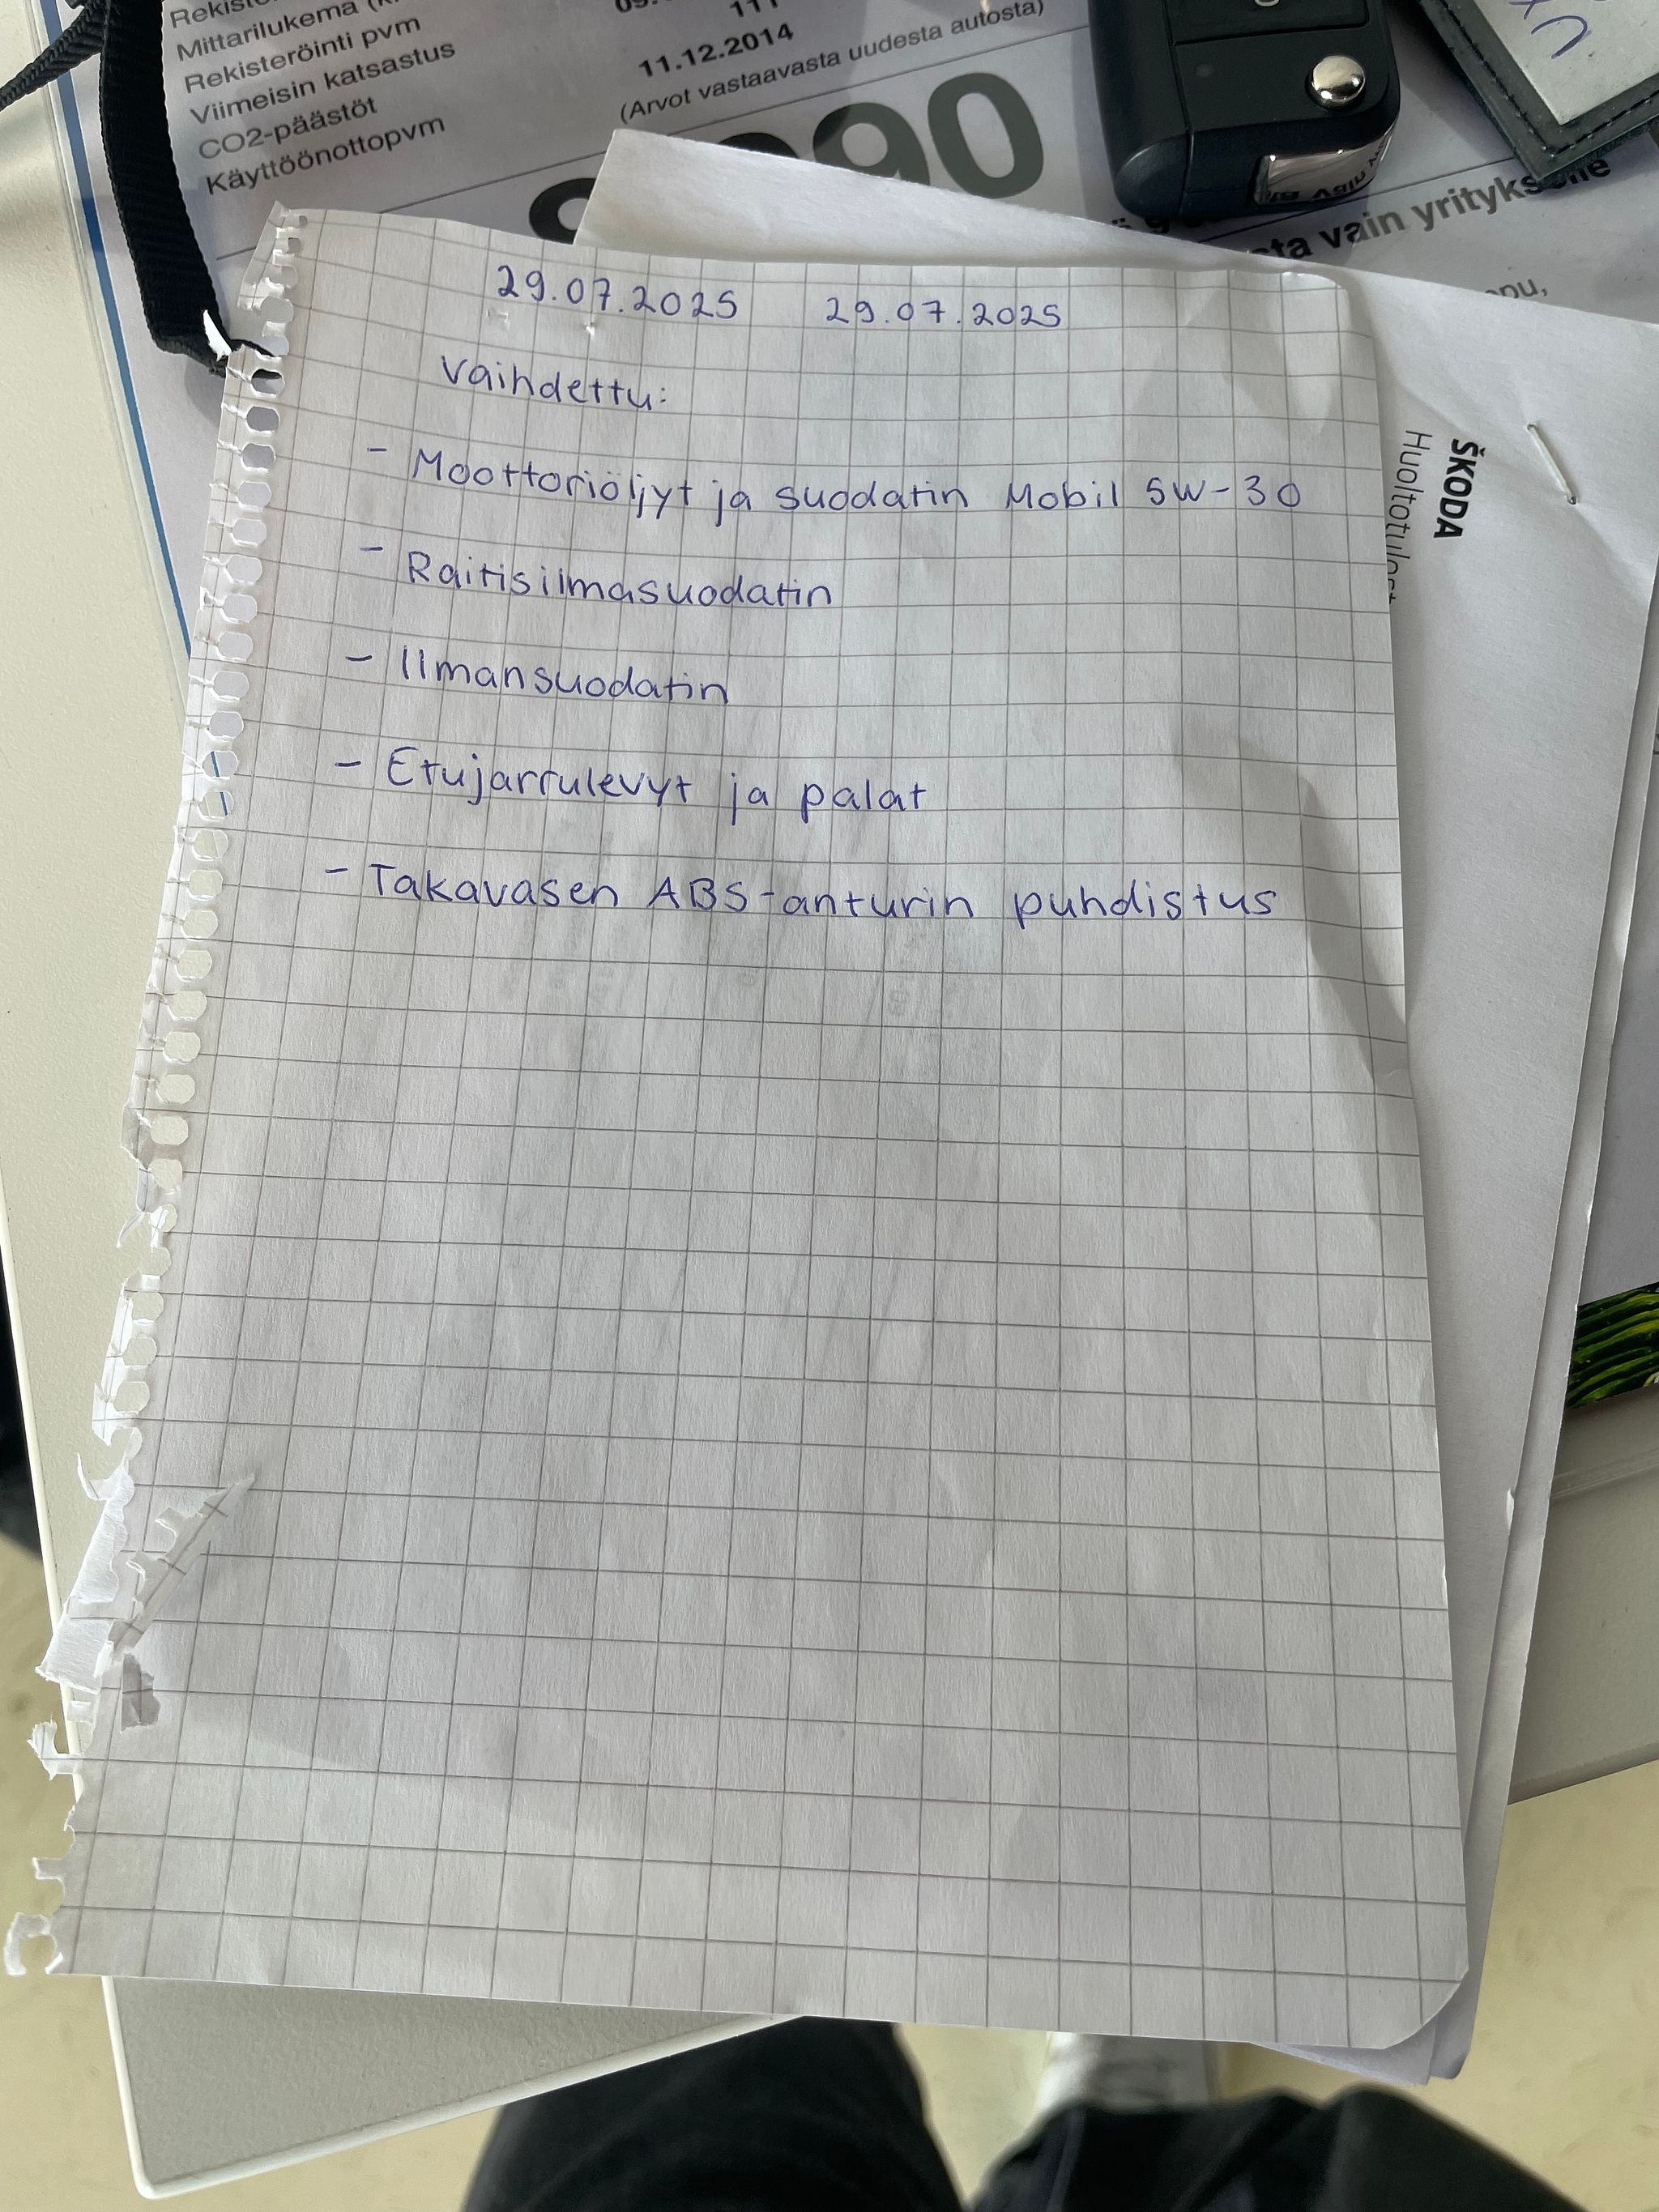 Mittarilukema
Rekisteröinti pvm
Viimeisin katsastus
CO2-päästöt
Käyttöönottopvm
11.12.2014
(Arvot vastaavasta uudesta autosta)
90
vain yrityks
29.07.2025 29.07.2025
Vaihdettu:
- Moottoriöljyt ja suodatin Mobil 5W-30
- Raitisilmasuodatin
- Ilmansuodatin
- Etujarrulevyt ja palat
- Takavasen ABS-anturin puhdistus
ŠKODA